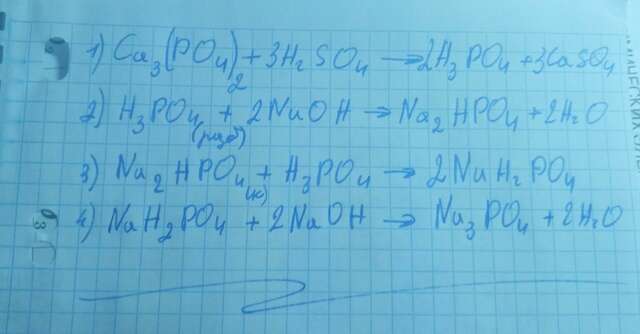 1) Ca₃(PO₄)₂ + 3H₂SO₄ → 2H₃PO₄ + 3CaSO₄
2) H₃PO₄ (разб) + 2NaOH → Na₂HPO₄ + 2H₂O
3) Na₂HPO₄ (к) + H₃PO₄ → 2NaH₂PO₄
4) NaH₂PO₄ + 2NaOH → Na₃PO₄ + 2H₂O